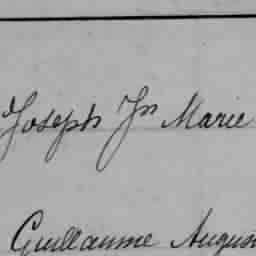 Joseph Jn Marie
Guillaume Augus